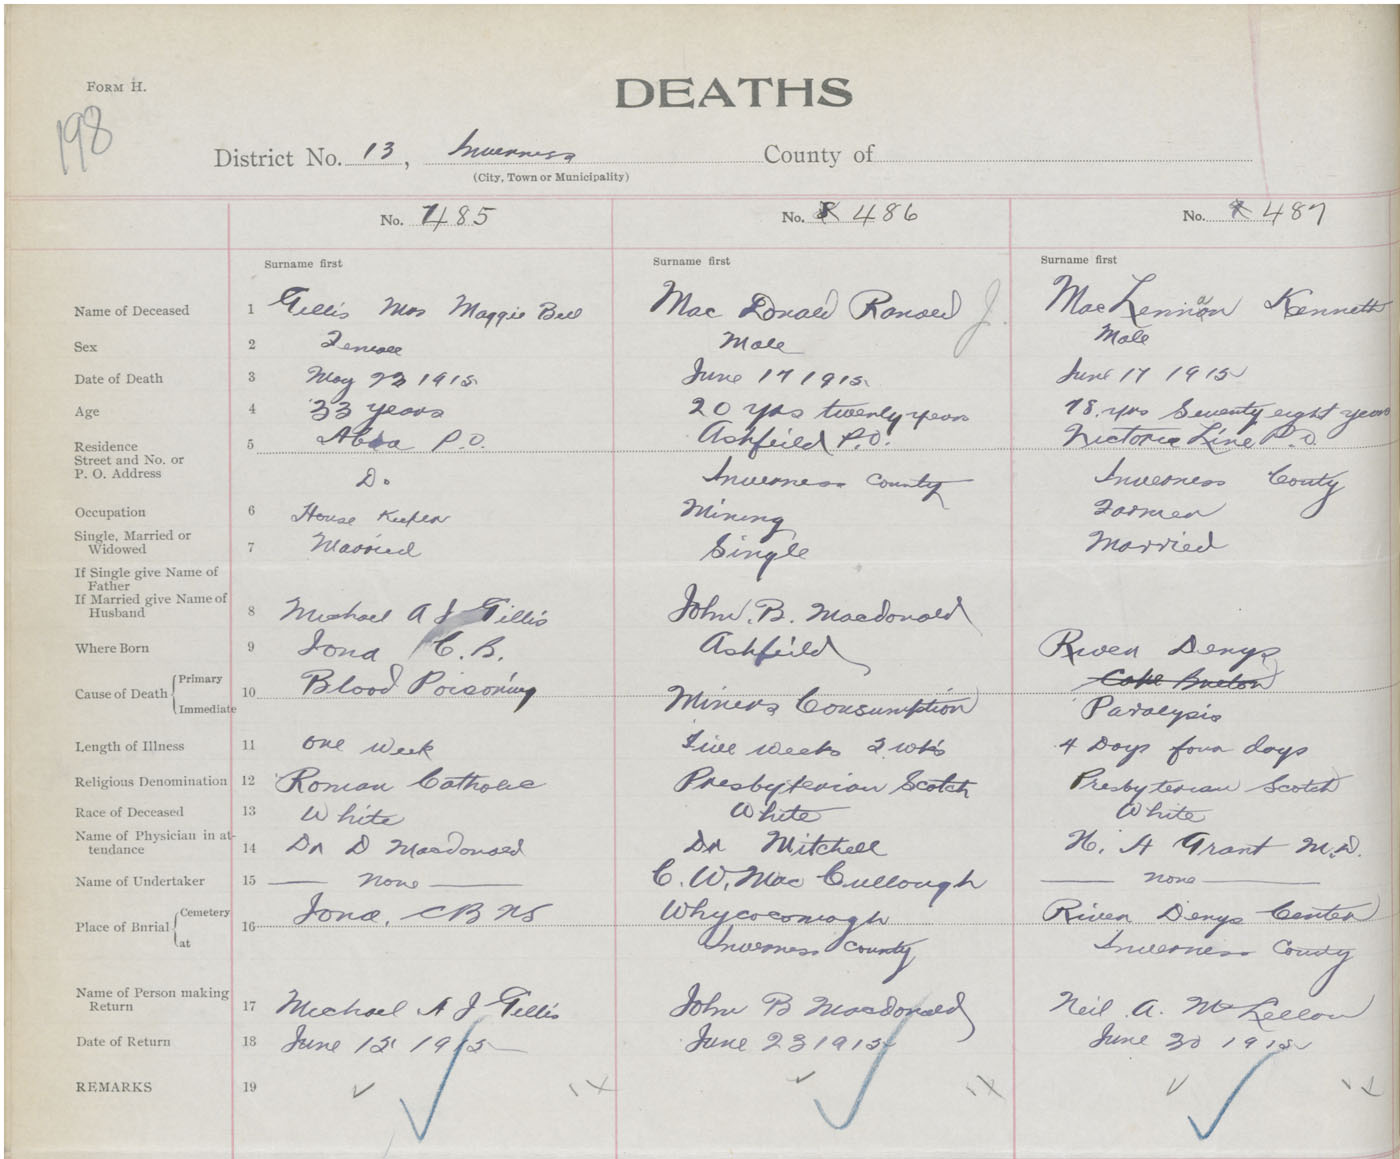 FORM H.
DEATHS
198
District No. 13, Inverness County of
(City, Town or Municipality)
No. 485 No. 486 No. 487
Surname first Surname first Surname first
Name of Deceased 1 Gillis Mrs Maggie Bell Mac Donald Ranald J. MacLennan Kenneth
Sex 2 Female Male Male
Date of Death 3 May 23 1915 June 17 1915 June 17 1915
Age 4 33 years 20 yrs twenty years 78 yrs Seventy eight years
Residence 5 P.O. Ashfeild P.O. Victoria Line P.O
Street and No. or
P. O. Address Do Inverness County Inverness Couty
Occupation 6 House Keeper Mining Farmer
Single, Married or
Widowed 7 Married Single Married
If Single give Name of
Father
If Married give Name of
Husband 8 Michael A J Gillis John. B. Macdonald
Where Born 9 Iona C. B. Ashfeild River Denys
Cape Breton
Cause of Death Primary 10 Blood Poisoning Miners Consumption Paralysis
Immediate
Length of Illness 11 one week weeks wks 4 Days four days
Religious Denomination 12 Roman Catholic Presbyterian Scotch Presbyterian Scotch
Race of Deceased 13 White White White
Name of Physician in at-
tendance 14 Dr D Macdonald Dr Mitchell H. A Grant M.D.
Name of Undertaker 15 — none — C. W. Mac Cullough — none —
Place of Burial Cemetery 16 Iona, CB NS Whycocomagh River Denys Center
at Inverness County Inverness County
Name of Person making
Return 17 Michael A J Gillis John B Macdonald Neil A. Mc
Date of Return 18 June 15 1915 June 23 1915 June 30 1915
REMARKS 19